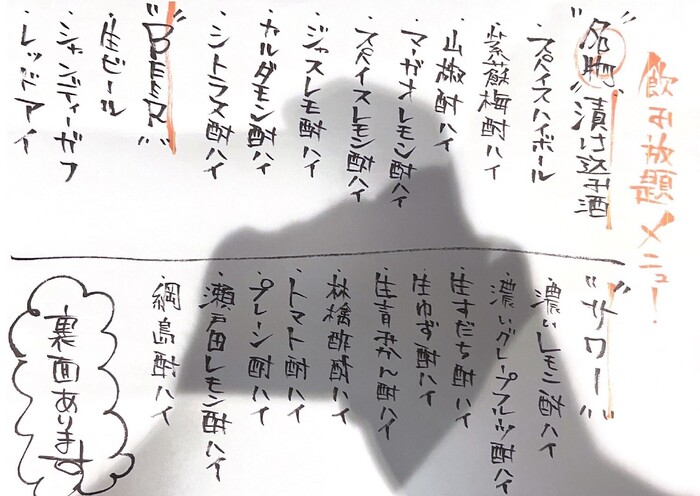 飲み放題メニュー!
"名物"漬け込み酒
・スパイスハイボール
・紫蘇梅酎ハイ
・山椒酎ハイ
・マーガオレモン酎ハイ
・スパイスレモン酎ハイ
・ジャスレモ酎ハイ
・カルダモン酎ハイ
・シトラス酎ハイ
"BEER"
・生ビール
・シャンディーガフ
・レッドアイ
"サワー"
・濃いレモン酎ハイ
・濃いグレープフルーツ酎ハイ
・生すだち酎ハイ
・生ゆず酎ハイ
・生青みかん酎ハイ
・林檎酢酎ハイ
・トマト酎ハイ
・プレーン酎ハイ
・瀬戸田レモン酎ハイ
・綱島酎ハイ
裏面あります